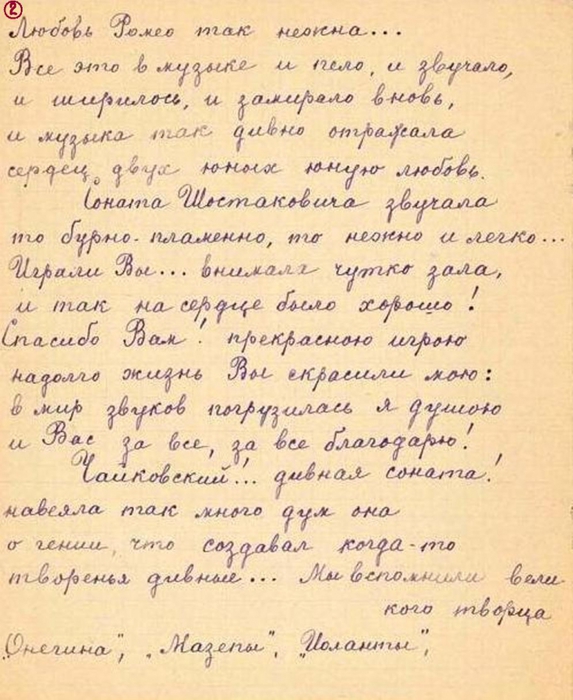 2
Любовь Ромео так нежна...
Все это в музыке и пело, и звучало,
и ширилось, и замирало вновь,
и музыка так дивно отражала
сердец двух юных юную любовь.
Соната Шостаковича звучала
то бурно-пламенно, то нежно и легко...
Играли Вы... внимала чутко зала,
и так на сердце было хорошо!
Спасибо Вам! прекрасною игрою
надолго жизнь Вы скрасили мою:
в мир звуков погрузилась я душою
и Вас за все, за все благодарю!
Чайковский!... дивная соната!
навеяла так много дум она
о гении, что создавал когда-то
творенья дивные... Мы вспомнили вели-
кого творца
„Онегина", „Мазепы", „Иоланты",